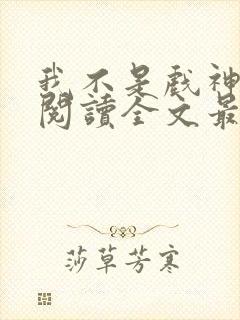 我不是戏神
閱讀全文最
莎草芳寒